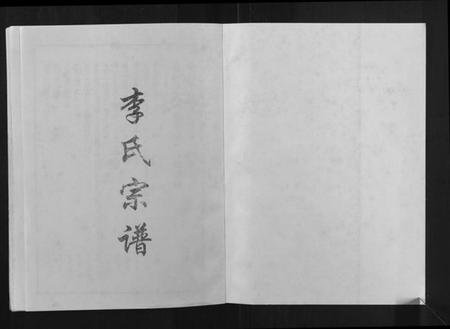 李氏宗谱